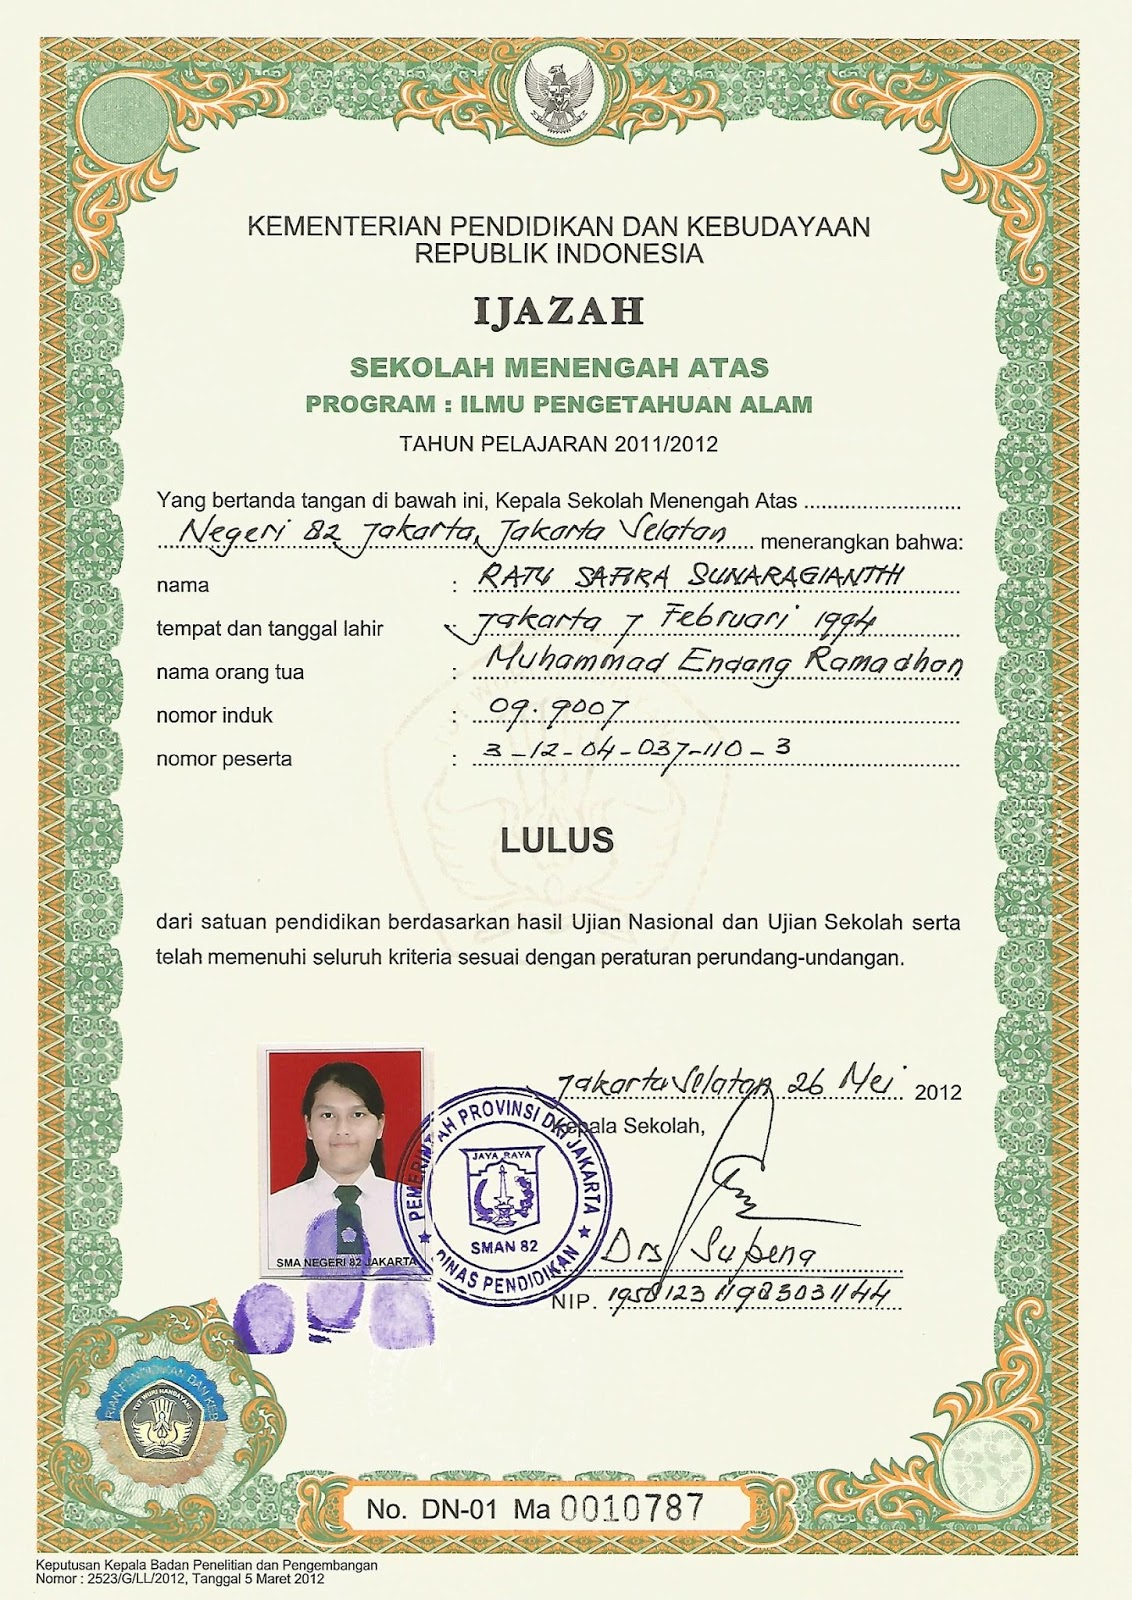 KEMENTERIAN PENDIDIKAN DAN KEBUDAYAAN
REPUBLIK INDONESIA
IJAZAH
SEKOLAH MENENGAH ATAS
PROGRAM : ILMU PENGETAHUAN ALAM
TAHUN PELAJARAN 2011/2012
Yang bertanda tangan di bawah ini, Kepala Sekolah Menengah Atas
Negeri 82 Jakarta, Jakarta Selatan menerangkan bahwa:
nama : RATU SAFIRA SUNARAGIANTIH
tempat dan tanggal lahir : Jakarta 7 Februari 1994
nama orang tua : Muhammad Endang Ramadhon
nomor induk : 09.9007
nomor peserta : 3-12-04-037-110-3
LULUS
dari satuan pendidikan berdasarkan hasil Ujian Nasional dan Ujian Sekolah serta
telah memenuhi seluruh kriteria sesuai dengan peraturan perundang-undangan.
Jakarta Selatan 26 Mei 2012
Kepala Sekolah,
PEMERINTAH PROVINSI DKI JAKARTA
JAYA RAYA
SMAN 82
DINAS PENDIDIKAN
SMA NEGERI 82 JAKARTA
Drs Supena
NIP. 195812311983031144
RIAN PENDIDIKAN DAN KEB
TUT WURI HANDAYANI
No. DN-01 Ma 0010787
Keputusan Kepala Badan Penelitian dan Pengembangan
Nomor : 2523/G/LL/2012, Tanggal 5 Maret 2012